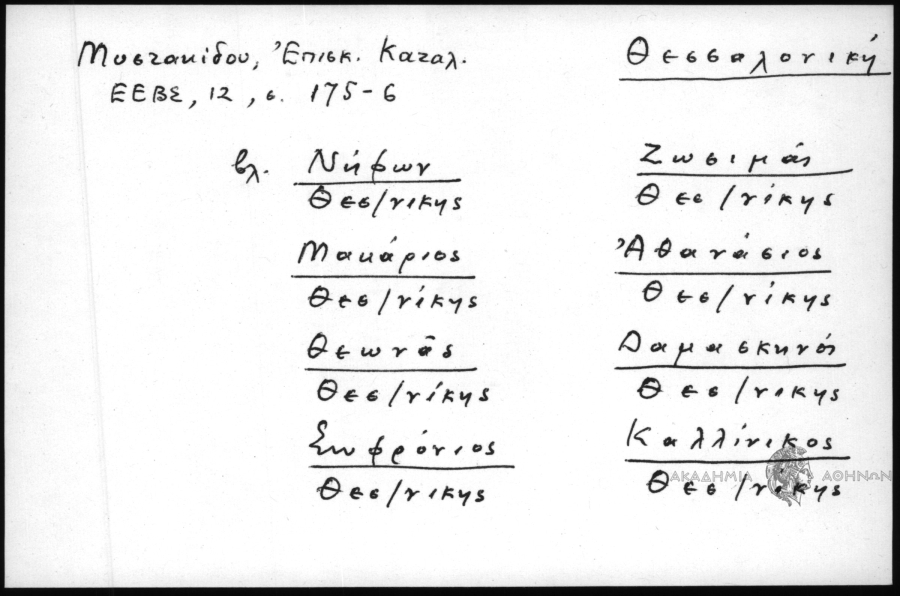 Μυστακίδου, Ἐπισκ. Καταλ.
ΕΕΒΣ, 12, σ. 175-6
Θεσσαλονική
βλ. Νήφων
Θεσ/νικης
Μακάριος
Θεσ/νίκης
Θεωνᾶς
Θεσ/νίκης
Σωφρόνιος
Θεσ/νικης
Ζωσιμάς
Θεσ/νίκης
Ἀθανάσιος
Θεσ/νίκης
Δαμασκηνός
Θεσ/νικης
Καλλίνικος
Θεσ/νίκης
ΑΚΑΔΗΜΙΑ ΑΘΗΝΩΝ